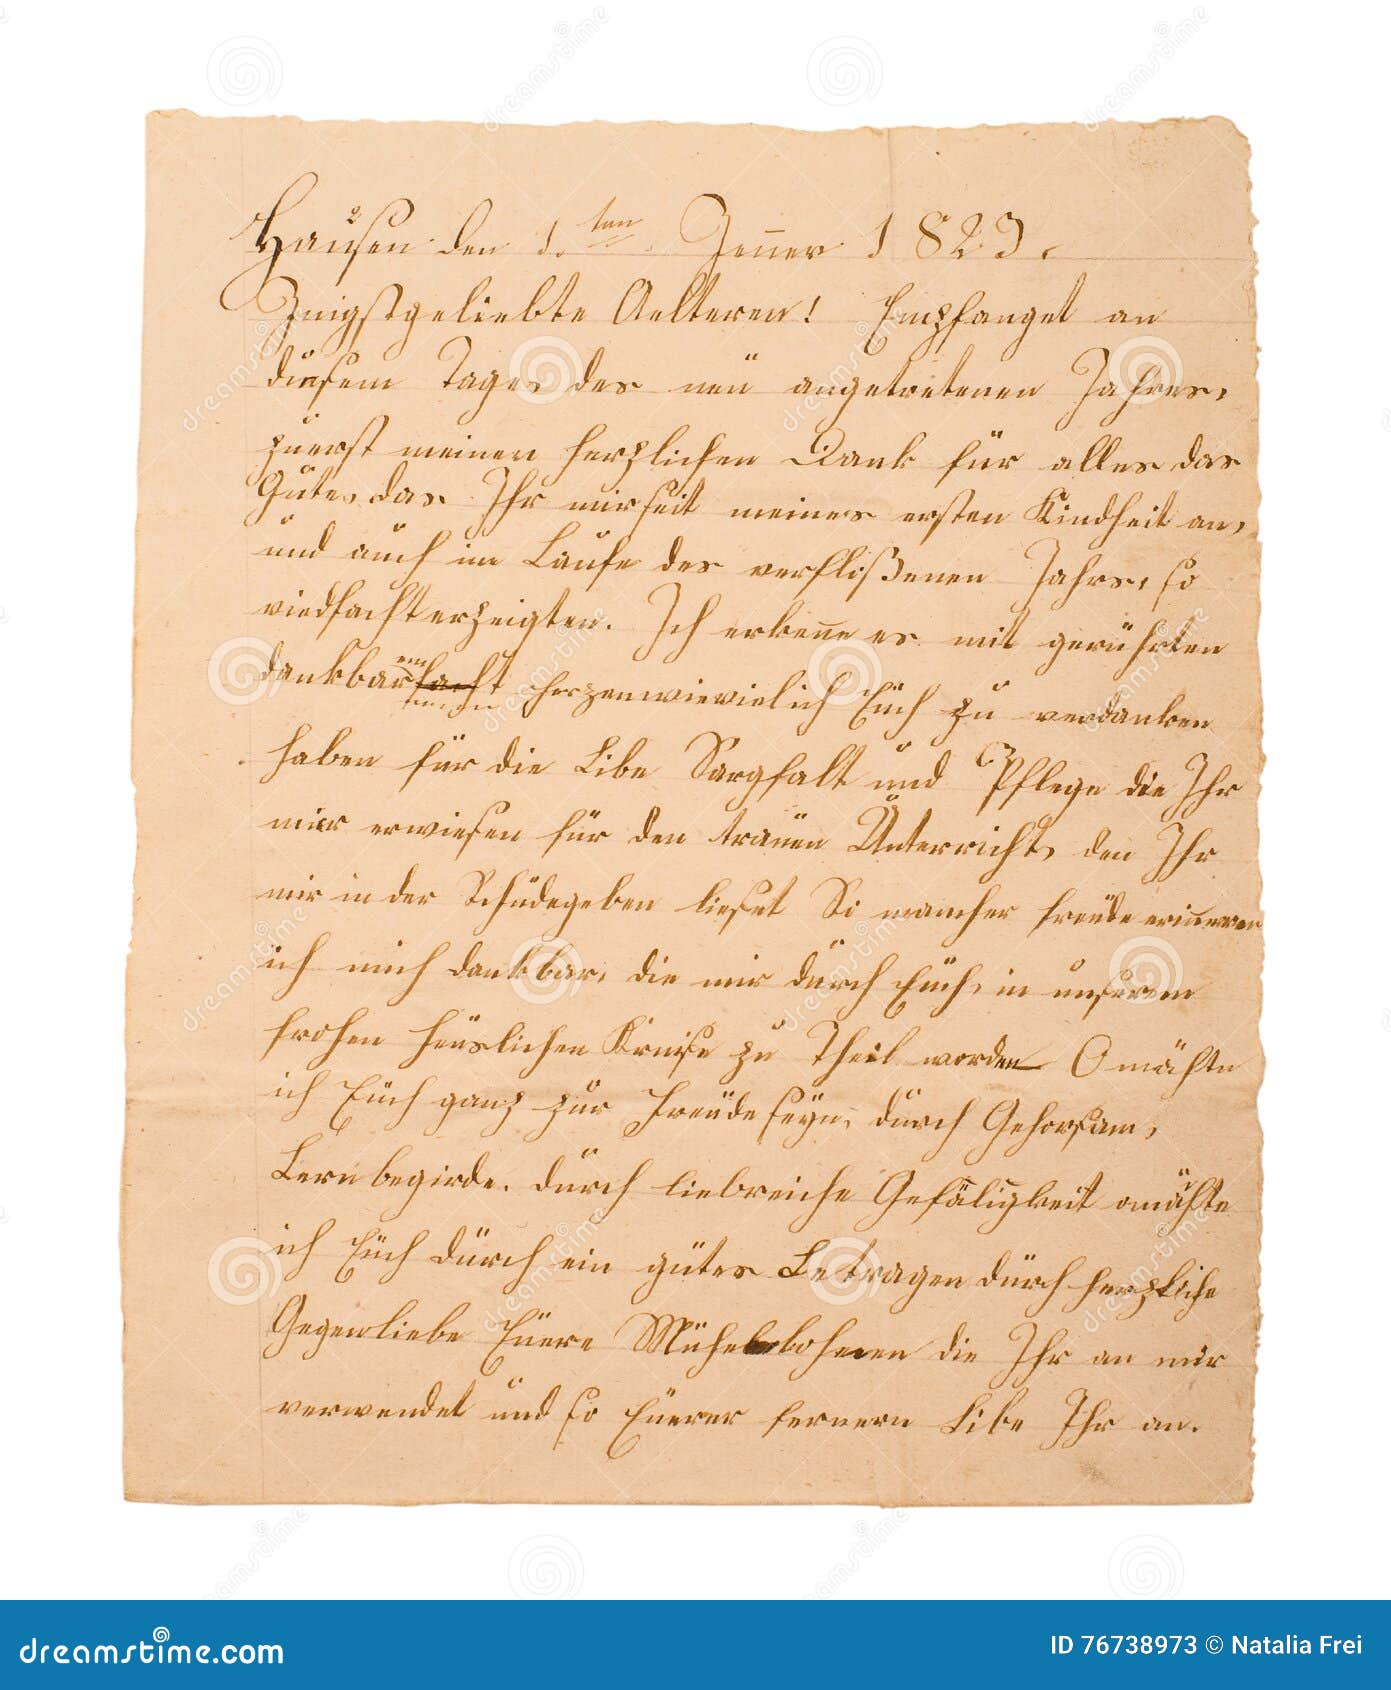 Hausen den 1.ten Jenner 1823.
Inigstgeliebte Aelteren! Empfanget an
diesem Tage, des neü angetretenen Jahres,
zuerst meinen herzlichen Dank für alles das
Gute, das Ihr mir seit meiner ersten Kindheit an,
und auch im Laufe des verflißenen Jahrs, so
vielfach erzeigten. Ich erkenne es mit gerührten
dankbar herzen wie vielich Eüch zu verdanken
haben für die Libe Sorgfalt und Pflege die Ihr
mir erwiesen für den treüen Unterricht, den Ihr
mir in der Schule geben ließet So mancher freüde erinneren
ich mich dankbar, die mir durch Eüch, in unserem
frohen heüslichen Kreise zu Theil worden O möchte
ich Eüch ganz zur Freüde seyn, durch Gehorsam,
Lernbegirde. durch liebreiche Gefäligkeit o möchte
ich Eüch dürch ein gutes Betragen dürch herzliche
Gegenliebe Eüere Mühe belohnen die Ihr an mir
verwendet und so Eüerer fernern Libe Ihr an.
dreamstime.com
ID 76738973 © Natalia Frei
dreamstime